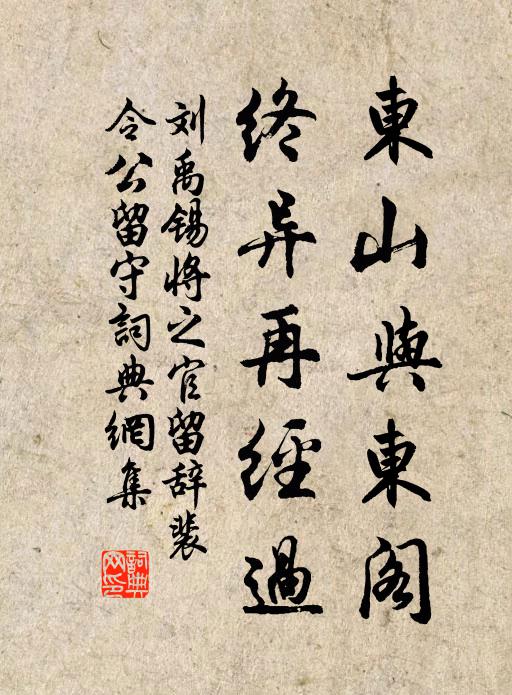 東山與東阁
终异再經過
刘禹锡將之官留辞裴
令公留守詞典網集
詞典
网印